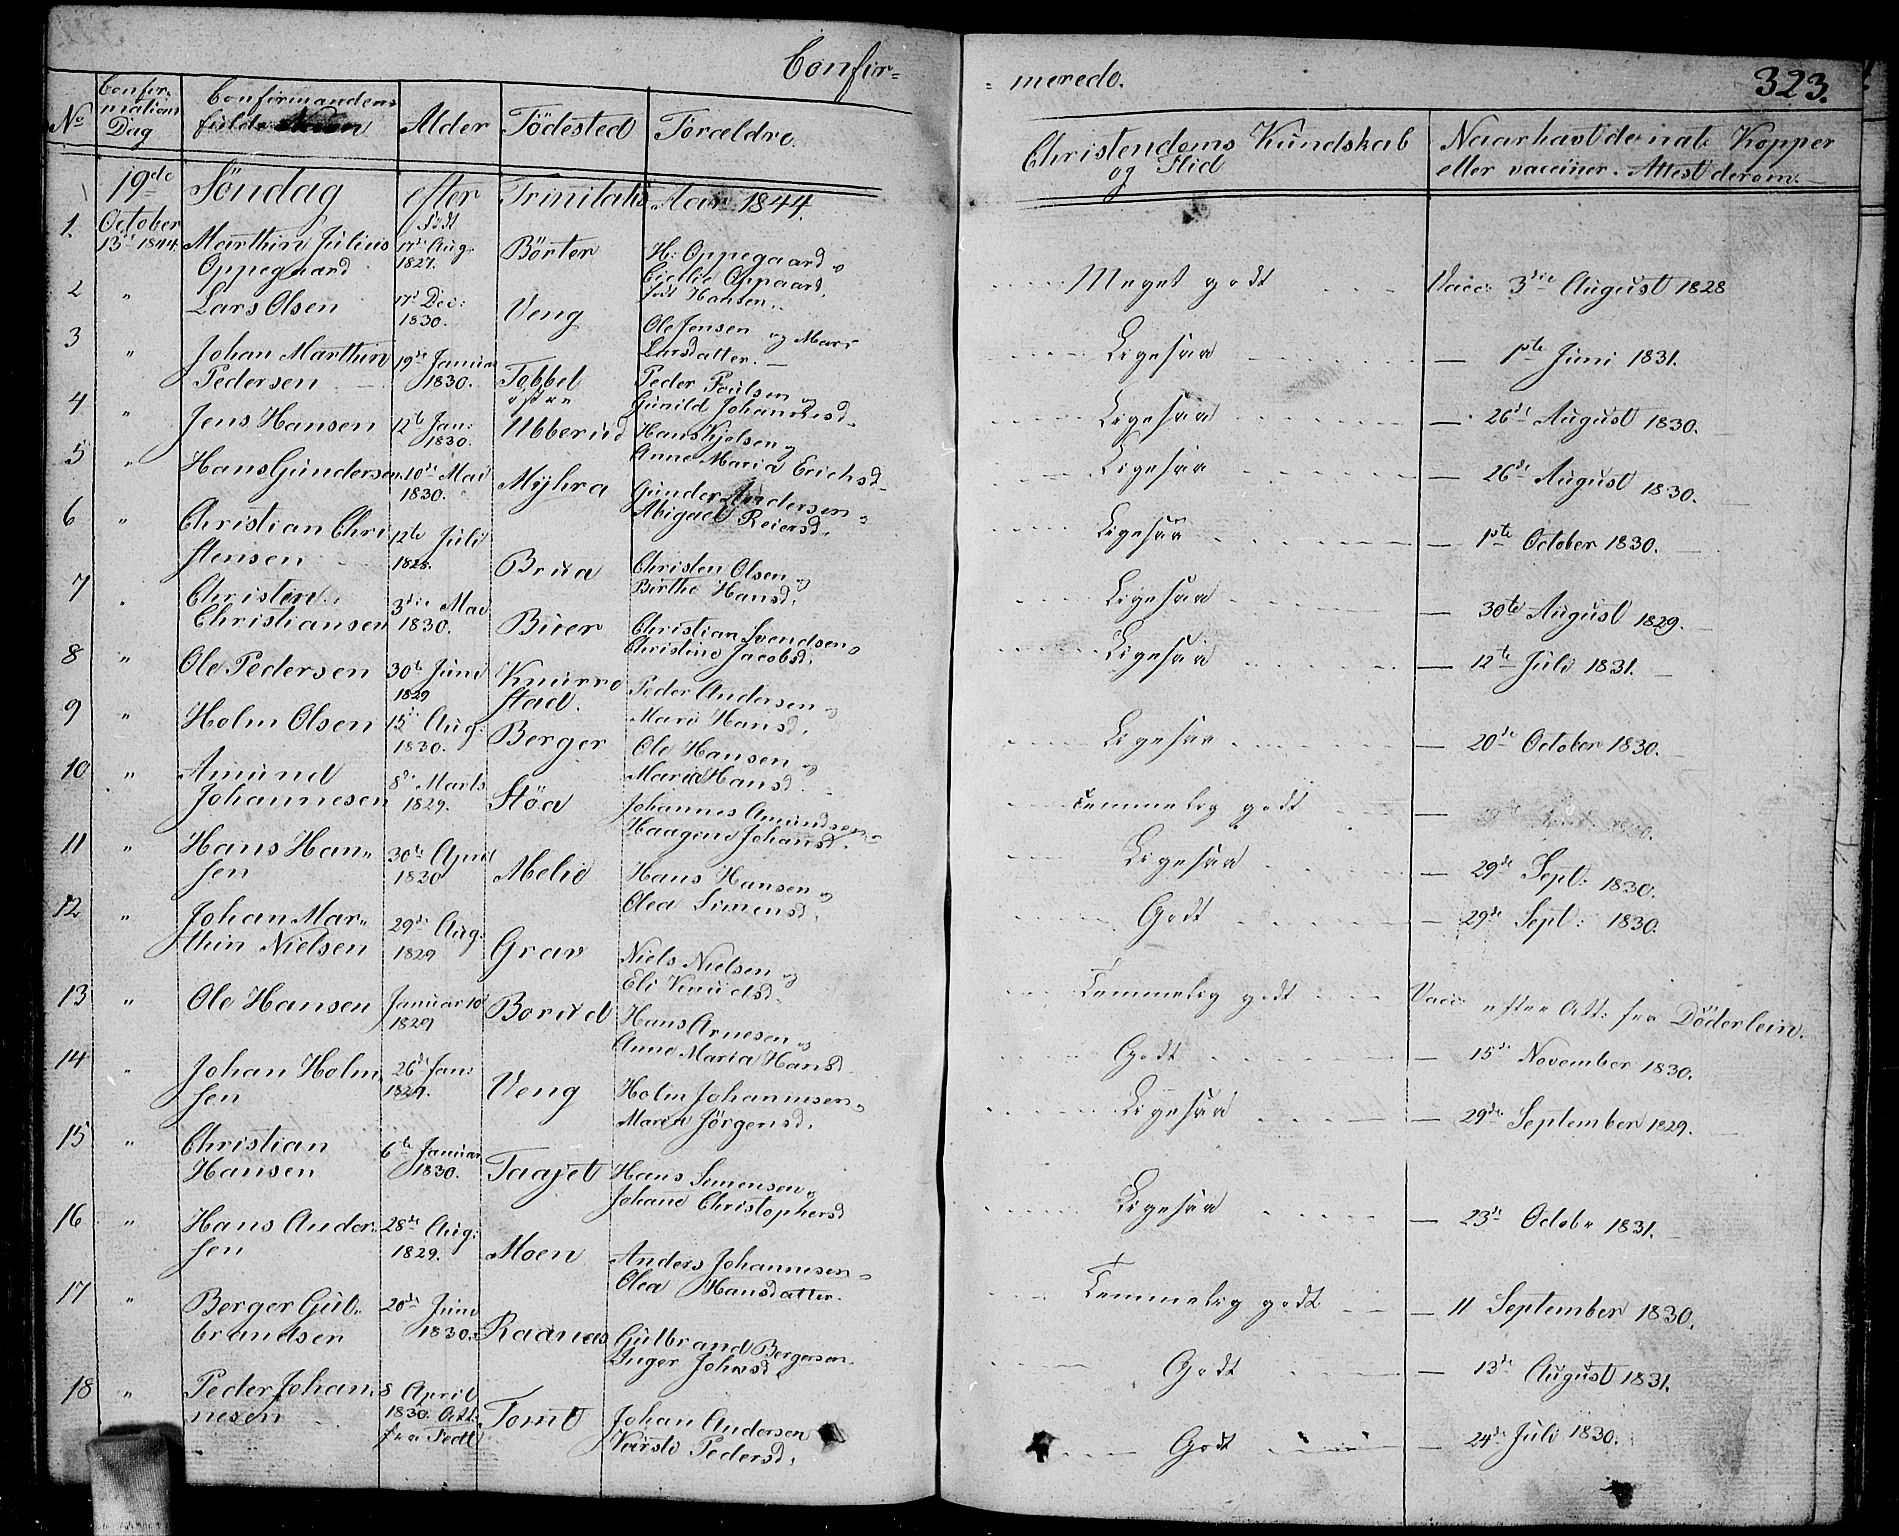 Confir=
= merede.
323.
No
Confir-
mations
Dag
Confirmandens
fulde Navn
Alder
Födested
Foreldre.
Christendoms Kundskab
og Flid
Naar havt de nat: Kopper
eller vacciner. Attest derom.
19de Söndag efter Trinitatis Aar 1844.
1. October 13de 1844 Marthin Julius Oppegaard Födt 17de Aug. 1827. Börter H: Oppegaard og Cicilie Oppaard, födt Hansen. Meget godt Vacc: 3die August 1828
2 " Lars Olsen 17d Dec: 1830. Veng Ole Jensen og Mari Larsdatter. Ligesaa 1ste Juni 1831.
3 " Johan Marthin Pedersen 19de Januar 1830. Tobbel Peder Poulsen og Gunild Johannesd. Ligesaa 26de August 1830.
4 " Jens Hansen 12te Jan: 1830. Ubberud Hans Kjelsen og Anne Maria Erichsd Ligesaa 26de August 1830.
5 " Hans Gundersen 10de Mai 1830. Myhra Gunder Andersen og Abigael Reiersd. Ligesaa 1ste October 1830.
6 " Christian Christensen 12te Juli 1828. Brua Christen Olsen og Birthe Hansd. Ligesaa 30te August 1829.
7 " Christen Christiansen 3die Mai 1830. Buer Christian Svendsen og Christine Jacobsd. Ligesaa 12te Juli 1831.
8 " Ole Pedersen 30te Juni 1829 Knurrestad. Peder Andersen og Mari Hansd. Ligesaa 20de October 1830.
9 " Holm Olsen 15de Aug: 1830. Berger Ole Hansen og Maria Hansd. Temmelig godt
10 " Amund Johannesen 8de Marts 1829. Stöa Johannes Amundsen og Haagine Johansd. Ligesaa 29de Sept: 1830.
11 " Hans Hansen 30te April 1820 Melie Hans Hansen og Olea Simensd. Godt 29de Sept: 1830.
12 " Johan Marthin Nielsen 29de Aug: 1829 Grav Niels Nielsen og Eli Knudsd. Temmelig godt Vacc: efter Att: fra Döderlein.
13 " Ole Hansen Januar 10de 1829 Borud Hans Arnesen og Anne Maria Hansd Godt 15de November 1830.
14 " Johan Holmsen 26de Jan: 1829. Veng Holm Johannesen og Maren Jörgensd. Ligesaa 29de September 1829.
15 " Christian Hansen 6te Januar 1830. Taajet Hans Simensen og Johane Christophersd Ligesaa 23de Octobr 1831.
16 " Hans Andersen 28de Aug: 1829. Moen Anders Johannesen og Olea Hansdatter. Temmelig godt 11 September 1830.
17 " Berger Gulbrandsen 20de Juni 1830. Raanas Gulbrand Bergersen Inger Johnsd. Godt 13de August 1831.
18 " Peder Johannesen 8 April 1830. Att: fra Tomt Johan Andersen Pedersd. Godt 24de Juli 1830.